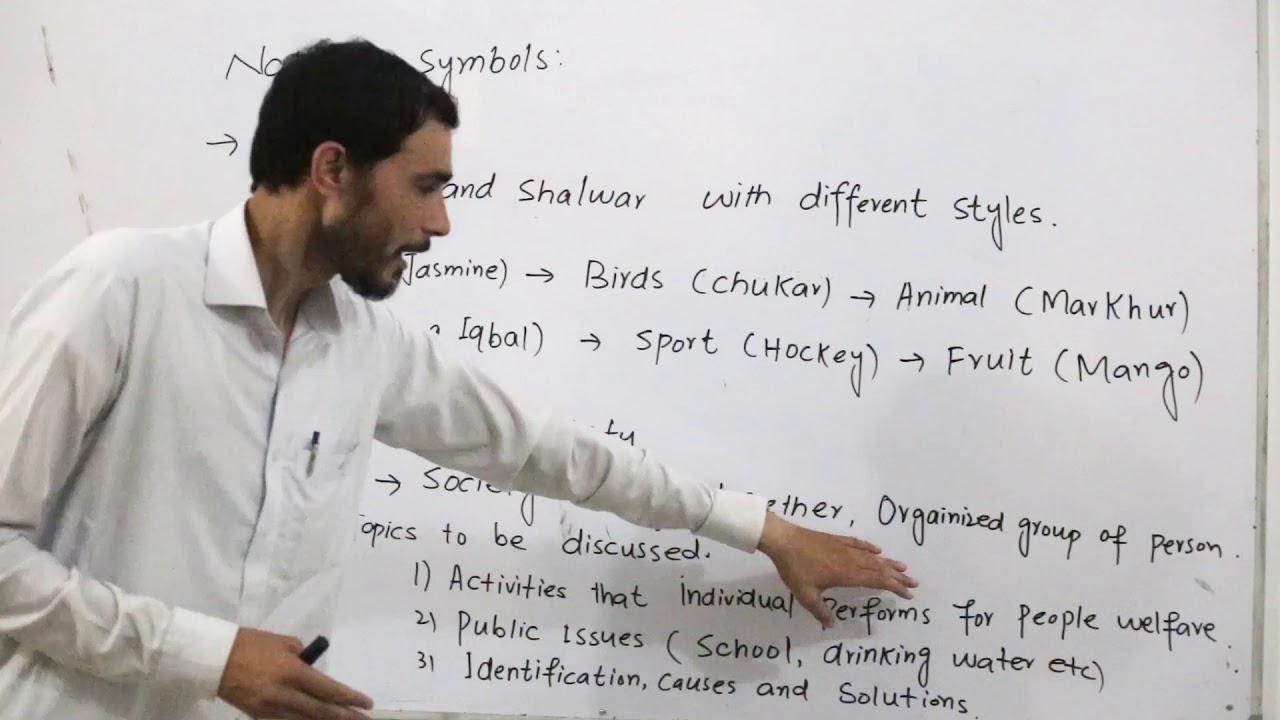 Symbols:
→
and Shalwar with different styles.
Jasmine) → Birds (chukar) → Animal (Markhur)
Iqbal) → Sport (Hockey) → Fruit (Mango)
→ Society ether, Orgainized group of person.
opics to be discussed.
1) Activities that individual Performs for people welfare.
2) Public issues (School, drinking water etc)
3) Identification, causes and Solutions.